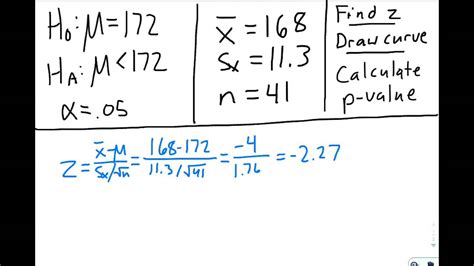 H₀: μ = 172
H_A: μ < 172
α = .05
x̄ = 168
Sx = 11.3
n = 41
Find z
Draw curve
Calculate
p-value
z = (x̄-μ)/(Sx/√n) = (168-172)/(11.3/√41) = -4/1.76 = -2.27